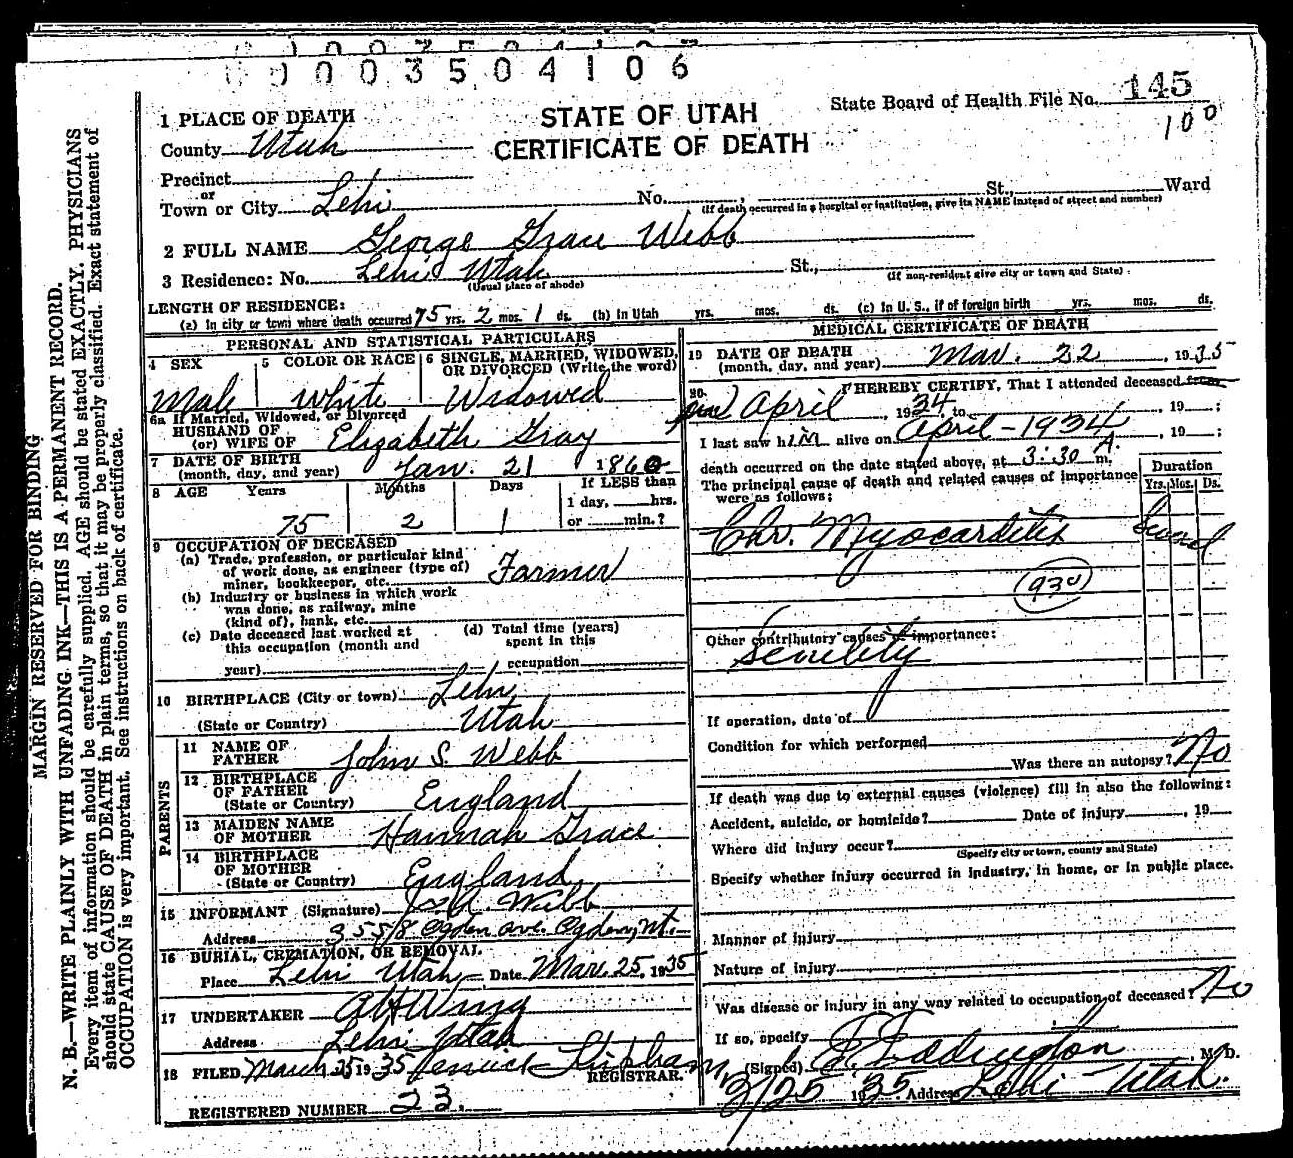 0003504106
State Board of Health File No. 145
100
STATE OF UTAH
CERTIFICATE OF DEATH
1 PLACE OF DEATH
County Utah
Precinct
or
Town or City Lehi No. , St., Ward
(If death occurred in a hospital or institution, give its NAME instead of street and number)
2 FULL NAME George Grace Webb
3 Residence: No. Lehi Utah St.,
(Usual place of abode) (If non-resident give city or town and State)
LENGTH OF RESIDENCE:
(a) In city or town where death occurred 75 yrs. 2 mos. 1 ds. (b) In Utah yrs. mos. ds. (c) In U. S., if of foreign birth yrs. mos. ds.
PERSONAL AND STATISTICAL PARTICULARS
4 SEX
Male
5 COLOR OR RACE
White
6 SINGLE, MARRIED, WIDOWED,
OR DIVORCED (Write the word)
Widowed
6a If Married, Widowed, or Divorced
HUSBAND OF
(or) WIFE OF Elizabeth Gray
7 DATE OF BIRTH
(month, day, and year) Jan. 21 1860
8 AGE Years Months Days If LESS than
1 day, hrs.
75 2 1 or min.?
9 OCCUPATION OF DECEASED
(a) Trade, profession, or particular kind
of work done, as engineer (type of)
miner, bookkeeper, etc. Farmer
(b) Industry or business in which work
was done, as railway, mine
(kind of), bank, etc.
(c) Date deceased last worked at
this occupation (month and
year)
(d) Total time (years)
spent in this
occupation
10 BIRTHPLACE (City or town) Lehi
(State or Country) Utah
PARENTS
11 NAME OF
FATHER John S. Webb
12 BIRTHPLACE
OF FATHER
(State or Country) England
13 MAIDEN NAME
OF MOTHER Hannah Grace
14 BIRTHPLACE
OF MOTHER
(State or Country) England
15 INFORMANT (Signature) Webb
Address 3558 Ogden ave. Ogden, Ut.
16 BURIAL, CREMATION, OR REMOVAL
Place Lehi Utah Date Mar. 25, 1935
17 UNDERTAKER A H Wing
Address Lehi Utah
18 FILED March 25 1935
REGISTRAR.
REGISTERED NUMBER 23.
MEDICAL CERTIFICATE OF DEATH
19 DATE OF DEATH
(month, day, and year) Mar. 22, 1935
20. I HEREBY CERTIFY, That I attended deceased from
April, 1934, to , 19 ;
I last saw him alive on April - 1934, 19 ;
death occurred on the date stated above, at 3:30 A. m.
The principal cause of death and related causes of importance
were as follows:
Duration
Yrs. Mos. Ds.
Chr. Myocarditis Several
930
Other contributory causes of importance:
Senility
If operation, date of
Condition for which performed
Was there an autopsy? No
If death was due to external causes (violence) fill in also the following:
Accident, suicide, or homicide? Date of injury , 19
Where did injury occur?
(Specify city or town, county and State)
Specify whether injury occurred in industry, in home, or in public place.
Manner of injury
Nature of injury
Was disease or injury in any way related to occupation of deceased? No
If so, specify
(Signed) E. Eddington, M. D.
3/25 1935. Address Lehi Utah.
MARGIN RESERVED FOR BINDING
N. B.—WRITE PLAINLY WITH UNFADING INK—THIS IS A PERMANENT RECORD.
Every item of information should be carefully supplied. AGE should be stated EXACTLY. PHYSICIANS
should state CAUSE OF DEATH in plain terms, so that it may be properly classified. Exact statement of
OCCUPATION is very important. See instructions on back of certificate.